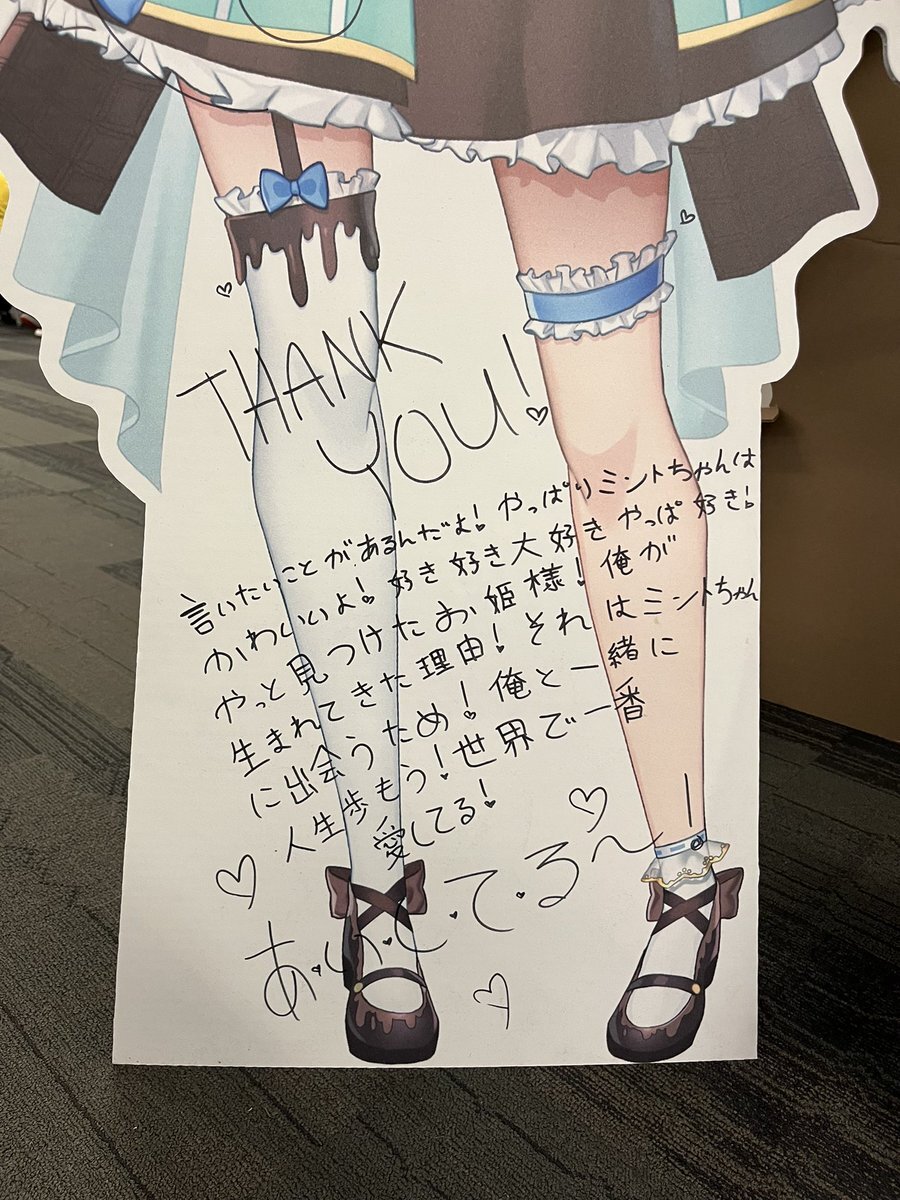 THANK
YOU!
言いたいことがあるんだよ!やっぱりミントちゃんは
かわいいよ!好き好き大好きやっぱ好き!
やっと見つけたお姫様!俺が
生まれてきた理由!それはミントちゃん
に出会うため!俺と一緒に
人生歩もう!世界で一番
愛してる!
あ・い・し・て・る〜